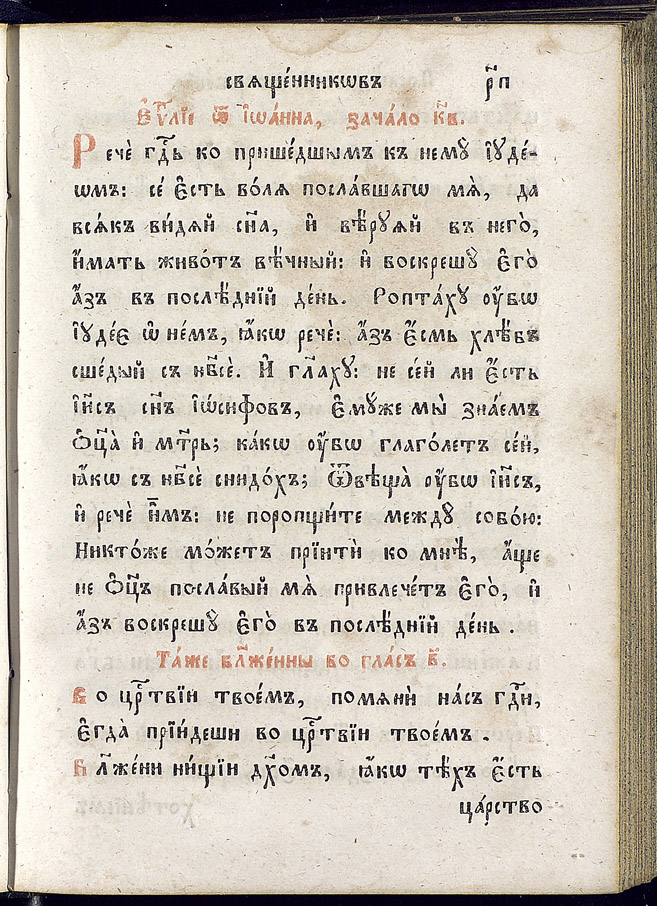 свѧще́нникѡвъ р҃п
Є҆ѵⷢ҇лїе ѿ і҆ѡа́нна, зача́ло к҃в.
Речѐ гдⷭ҇ь ко прише́дшымъ къ немꙋ̀ і҆ꙋде́-
ѡмъ: се́ є҆сть во́лѧ посла́вшагѡ мѧ̀, да
всѧ́къ ви́дѧй сн҃а, и҆ вѣ́рꙋѧй въ него̀,
и҆́мать живо́тъ вѣ́чный: и҆ воскрешꙋ̀ є҆го̀
а҆́зъ въ послѣ́днїй де́нь. Ропта́хꙋ ᲂу҆̀бѡ
і҆ꙋде́є ѡ҆ не́мъ, ꙗ҆́кѡ речѐ: а҆́зъ є҆́смь хлѣ́бъ
сше́дый съ нб҃сѐ. И҆ гл҃ахꙋ: не се́й ли є҆́сть
і҆и҃съ сн҃ъ і҆ѡ́сифовъ, є҆мꙋ́же мы̀ зна́емъ
ѻ҆ц҃а̀ и҆ мт҃рь; ка́кѡ ᲂу҆̀бѡ глаго́летъ се́й,
ꙗ҆́кѡ съ нб҃сѐ снидо́хъ; Ѿвѣща̀ ᲂу҆̀бѡ і҆и҃съ,
и҆ речѐ и҆̀мъ: не поропщи́те междꙋ̀ собо́ю:
Никто́же мо́жетъ прїитѝ ко мнѣ̀, а҆́ще
не ѻ҆ц҃ъ посла́вый мѧ̀ привлече́тъ є҆го̀, и҆
а҆́зъ воскрешꙋ̀ є҆го̀ въ послѣ́днїй де́нь.
Та́же бл҃же́нны во гла́съ в҃.
Во црⷭ҇твїи твое́мъ, помѧнѝ на́съ гдⷭ҇и,
є҆гда̀ прїи́деши во црⷭ҇твїи твое́мъ.
Бл҃же́ни ни́щїи дꙋ́хомъ, ꙗ҆́кѡ тѣ́хъ є҆́сть
ца́рство